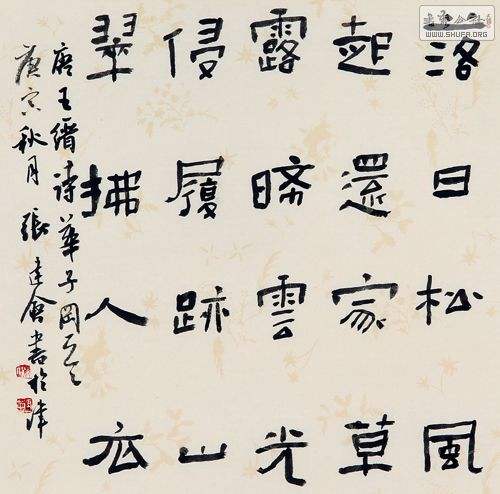 落日松風
起還家草
露晞雲光
侵履跡山
翠拂人衣
唐王縉詩華子岡
庚寅秋月 張建會書於津
WWW.SHUFA.ORG